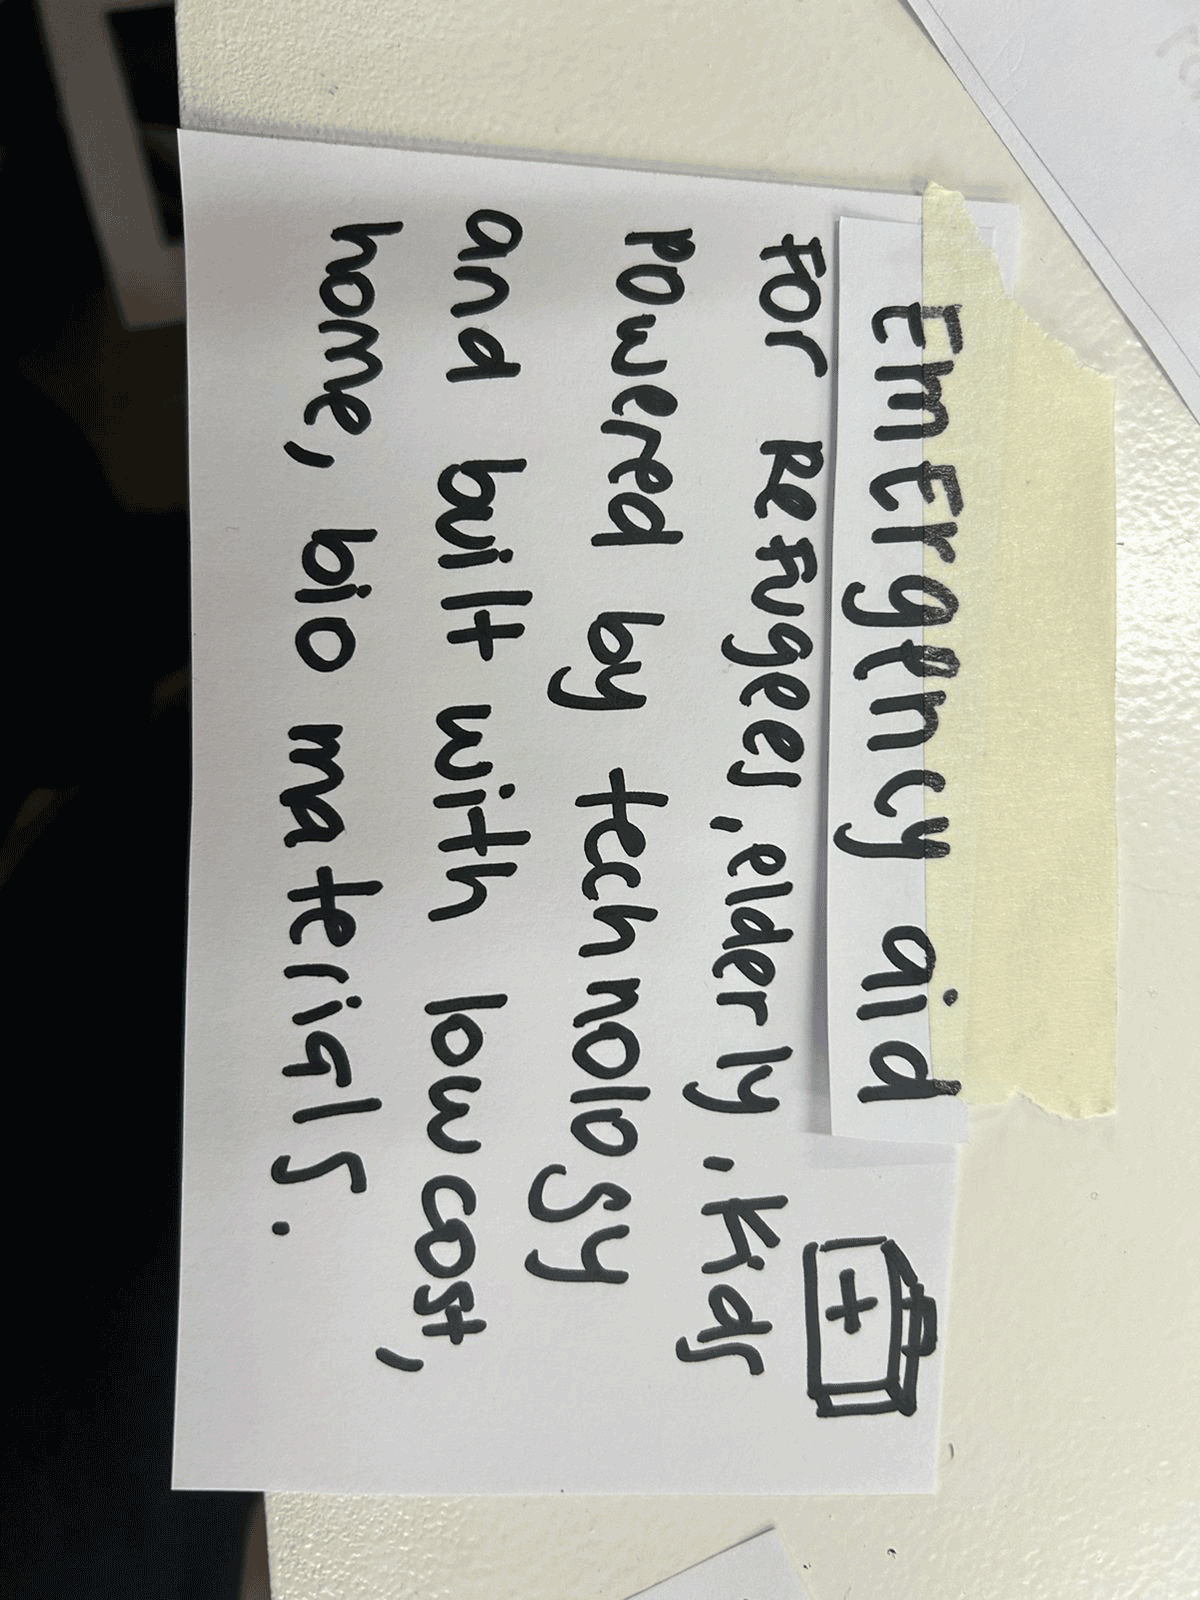 EmErgEncy aid
For Refugees, elderly, Kids
powered by technology
and built with low cost,
home, bio materials.